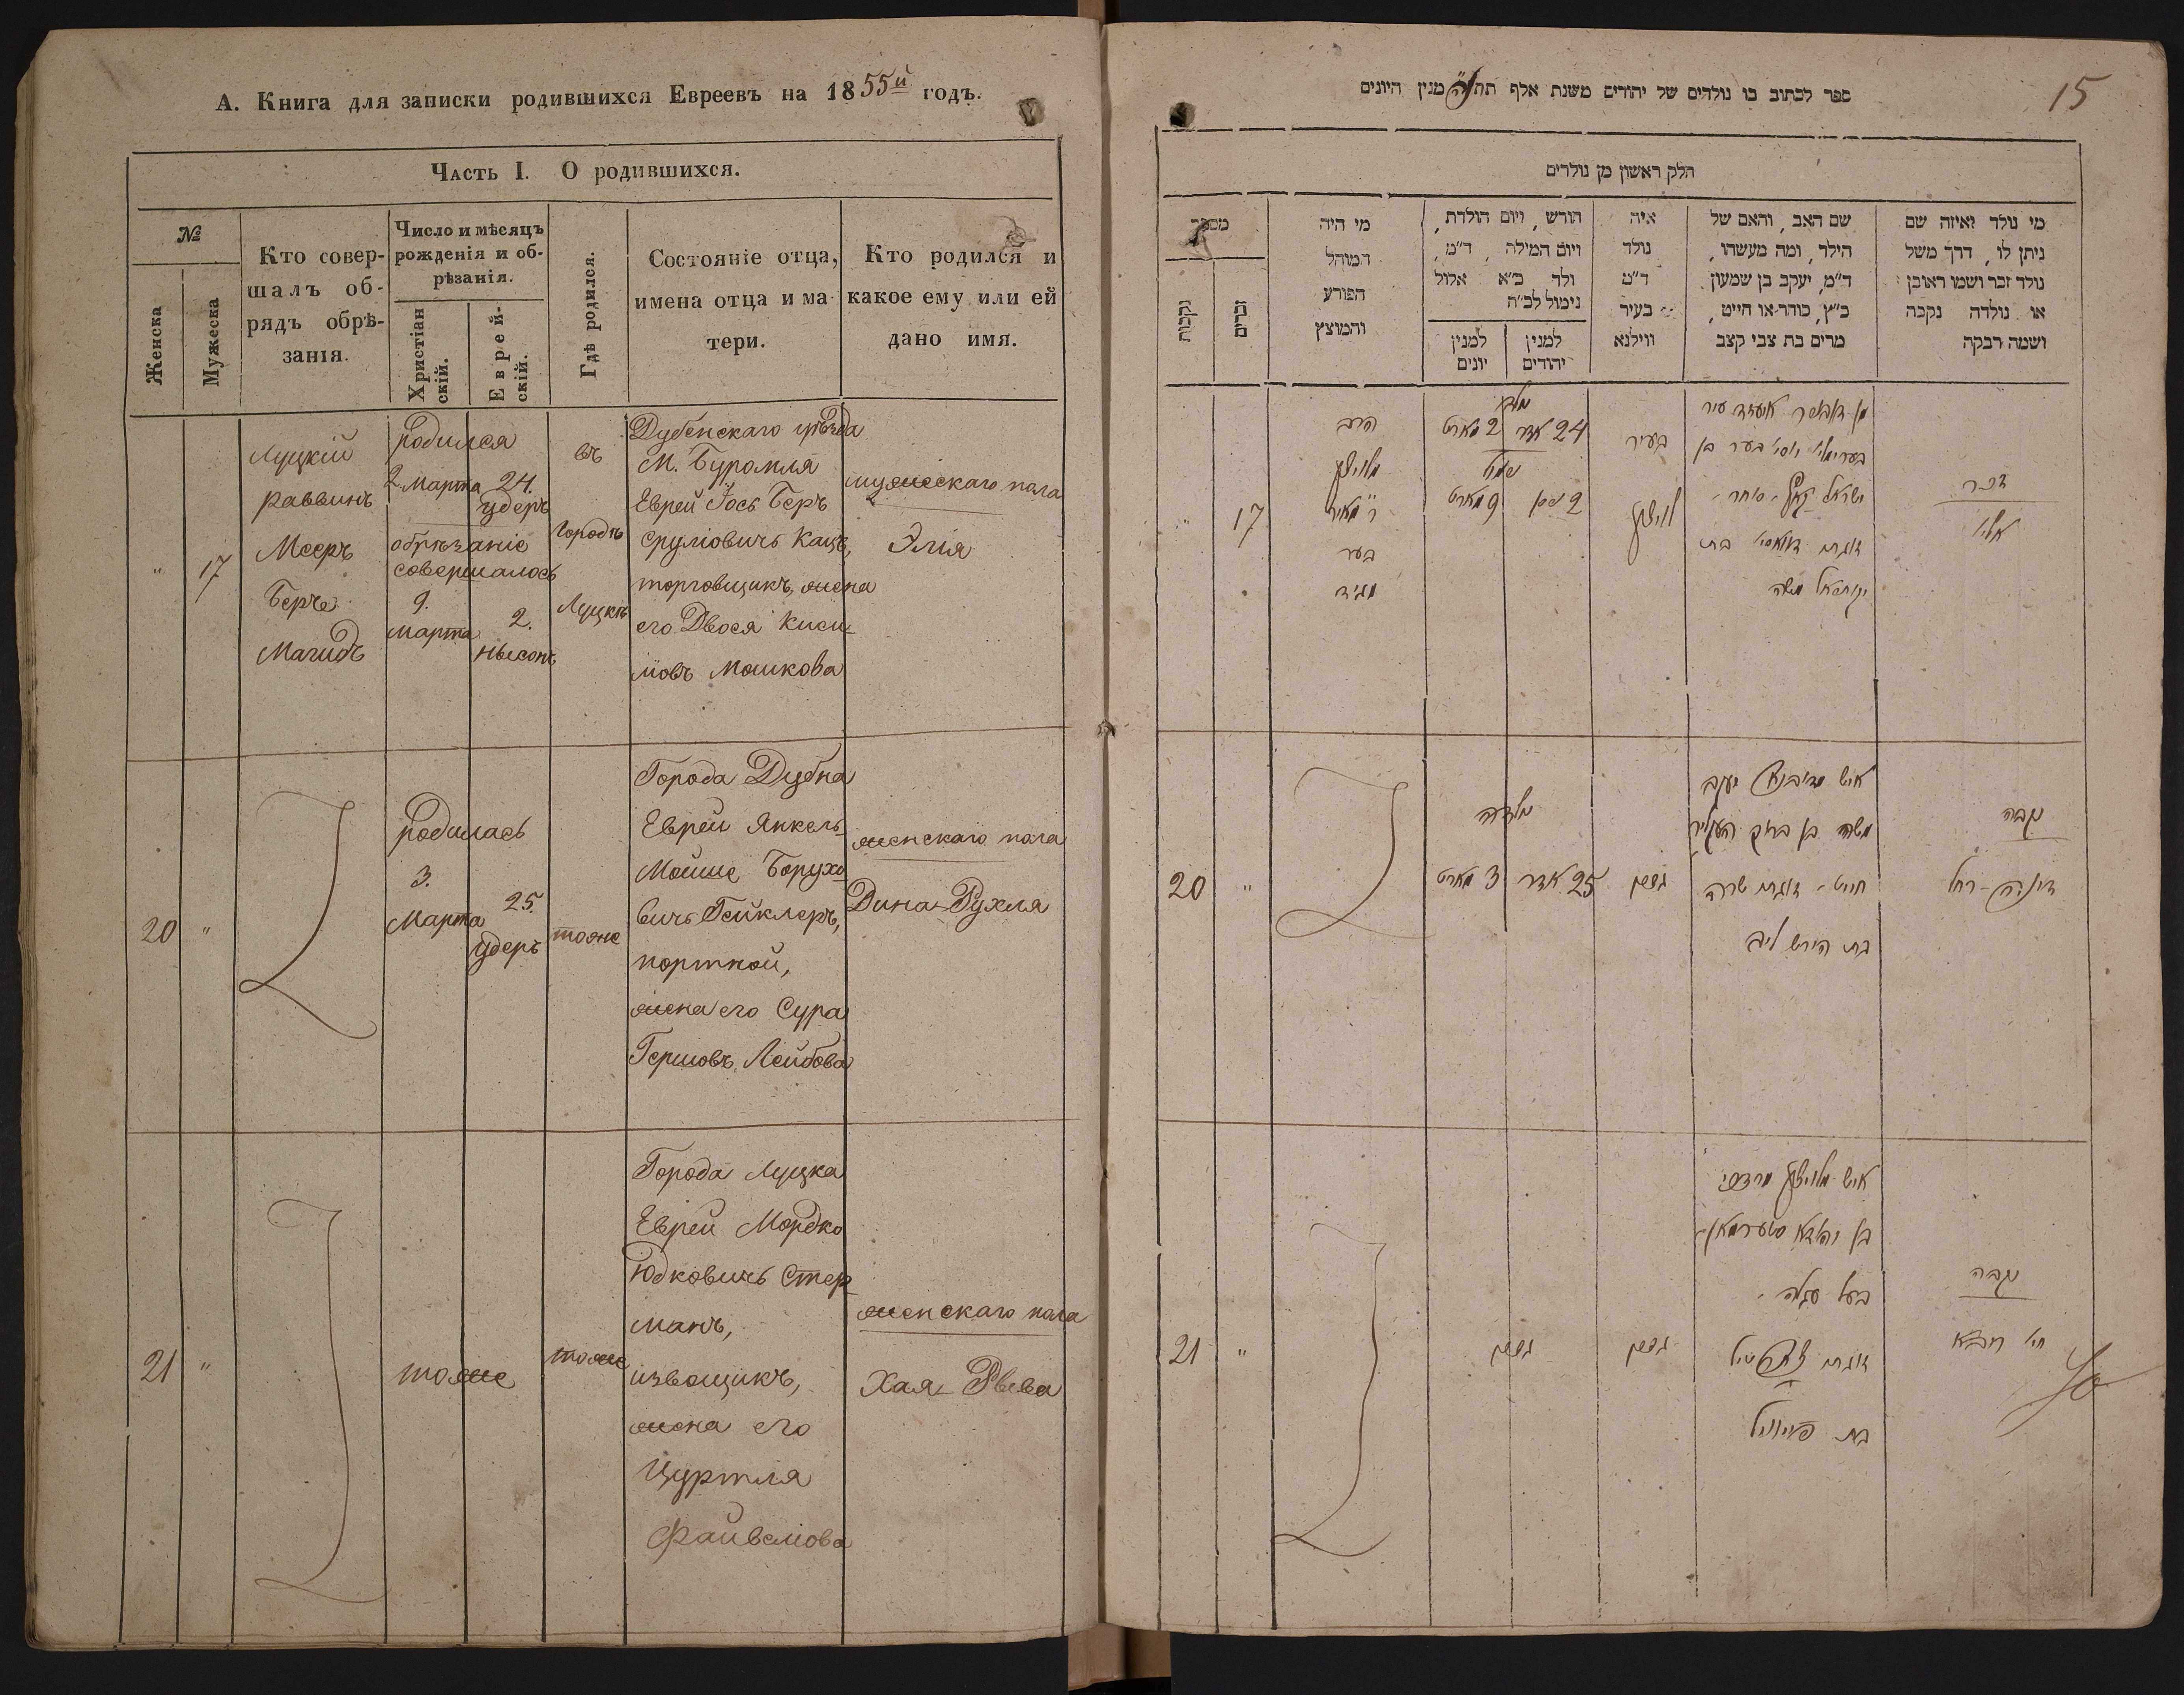 А. Книга для записки родившихся Евреевъ на 1855й годъ.
Часть I. О родившихся.
№
Женска
Мужеска
Кто совер-
шалъ об-
рядъ обрѣ-
занія.
Число и мѣсяцъ
рожденія и об-
рѣзанія.
Христіан
скій.
Еврей-
скій.
Гдѣ родился.
Состояніе отца,
имена отца и ма
тери.
Кто родился и
какое ему или ей
дано имя.
"
17
Луцкій
раввинъ
Мееръ
Берче
Магидъ
родился
2 Марта
24.
удеръ
обрѣзаніе
совершалось
9.
Марта
2.
нысонъ
въ
Городѣ
Луцкѣ
Дубенскаго уѣзда
М. Буромля
Еврей Іось Беръ
Сруліовичъ Кацъ,
торговщикъ, жена
его Двося Киси-
ловъ Мошкова
мужескаго пола
Элія
20
"
родилась
3.
Марта
25.
удеръ
тоже
Города Дубна
Еврей Янкель-
Мойше Борухо-
вичъ Гейклеръ,
портной,
жена его Сура
Гершовъ Лейбова
женскаго пола
Дина-Рухля
21
"
тоже
тоже
Города Луцка
Еврей Мордко
Юдковичъ Стер-
манъ,
извощикъ,
жена его
Цуртля
Файвеліова
женскаго пола
Хая-Рыва
15
ספר לכתוב בו נולדים של יהודים משנת אלף תת נ"ה מנין היונים
חלק ראשון מן נולדים
מי נולד ואיזה שם
ניתן לו, דרך משל
נולד זכר ושמו ראובן
או נולדה נקבה
ושמה רבקה
שם האב, והאם של
הילד, ומה מעשהו,
ד״מ, יעקב בן שמעון
כ״ץ, סוחר או חייט,
מרים בת צבי קצב
איה
נולד
ד״מ
בעיר
ווילנא
חודש, ויום הולדת,
ויום המילה, ד״מ,
ולד כ״א אלול
נימול לכ״ח
למנין
יהודים
למנין
יונים
מי היה
המוהל
הפורע
והמוצץ
מספר
זכרים
נקבות
זכר
אליי
ישראל קאץ סוחר
בעיר
24 אדר
2 מארט
נימול
2 ניסן
9 מארט
הרב
ר' מאיר
בער
מגיד
17
"
נקבה
דינה-רחל
משה בן ברוך
חייט זוגתו שרה
בת הירש ליב
נולדה
25 אדר
3 מארט
"
20
נקבה
חיי
בעל עגלה
בת פייוויל
"
21